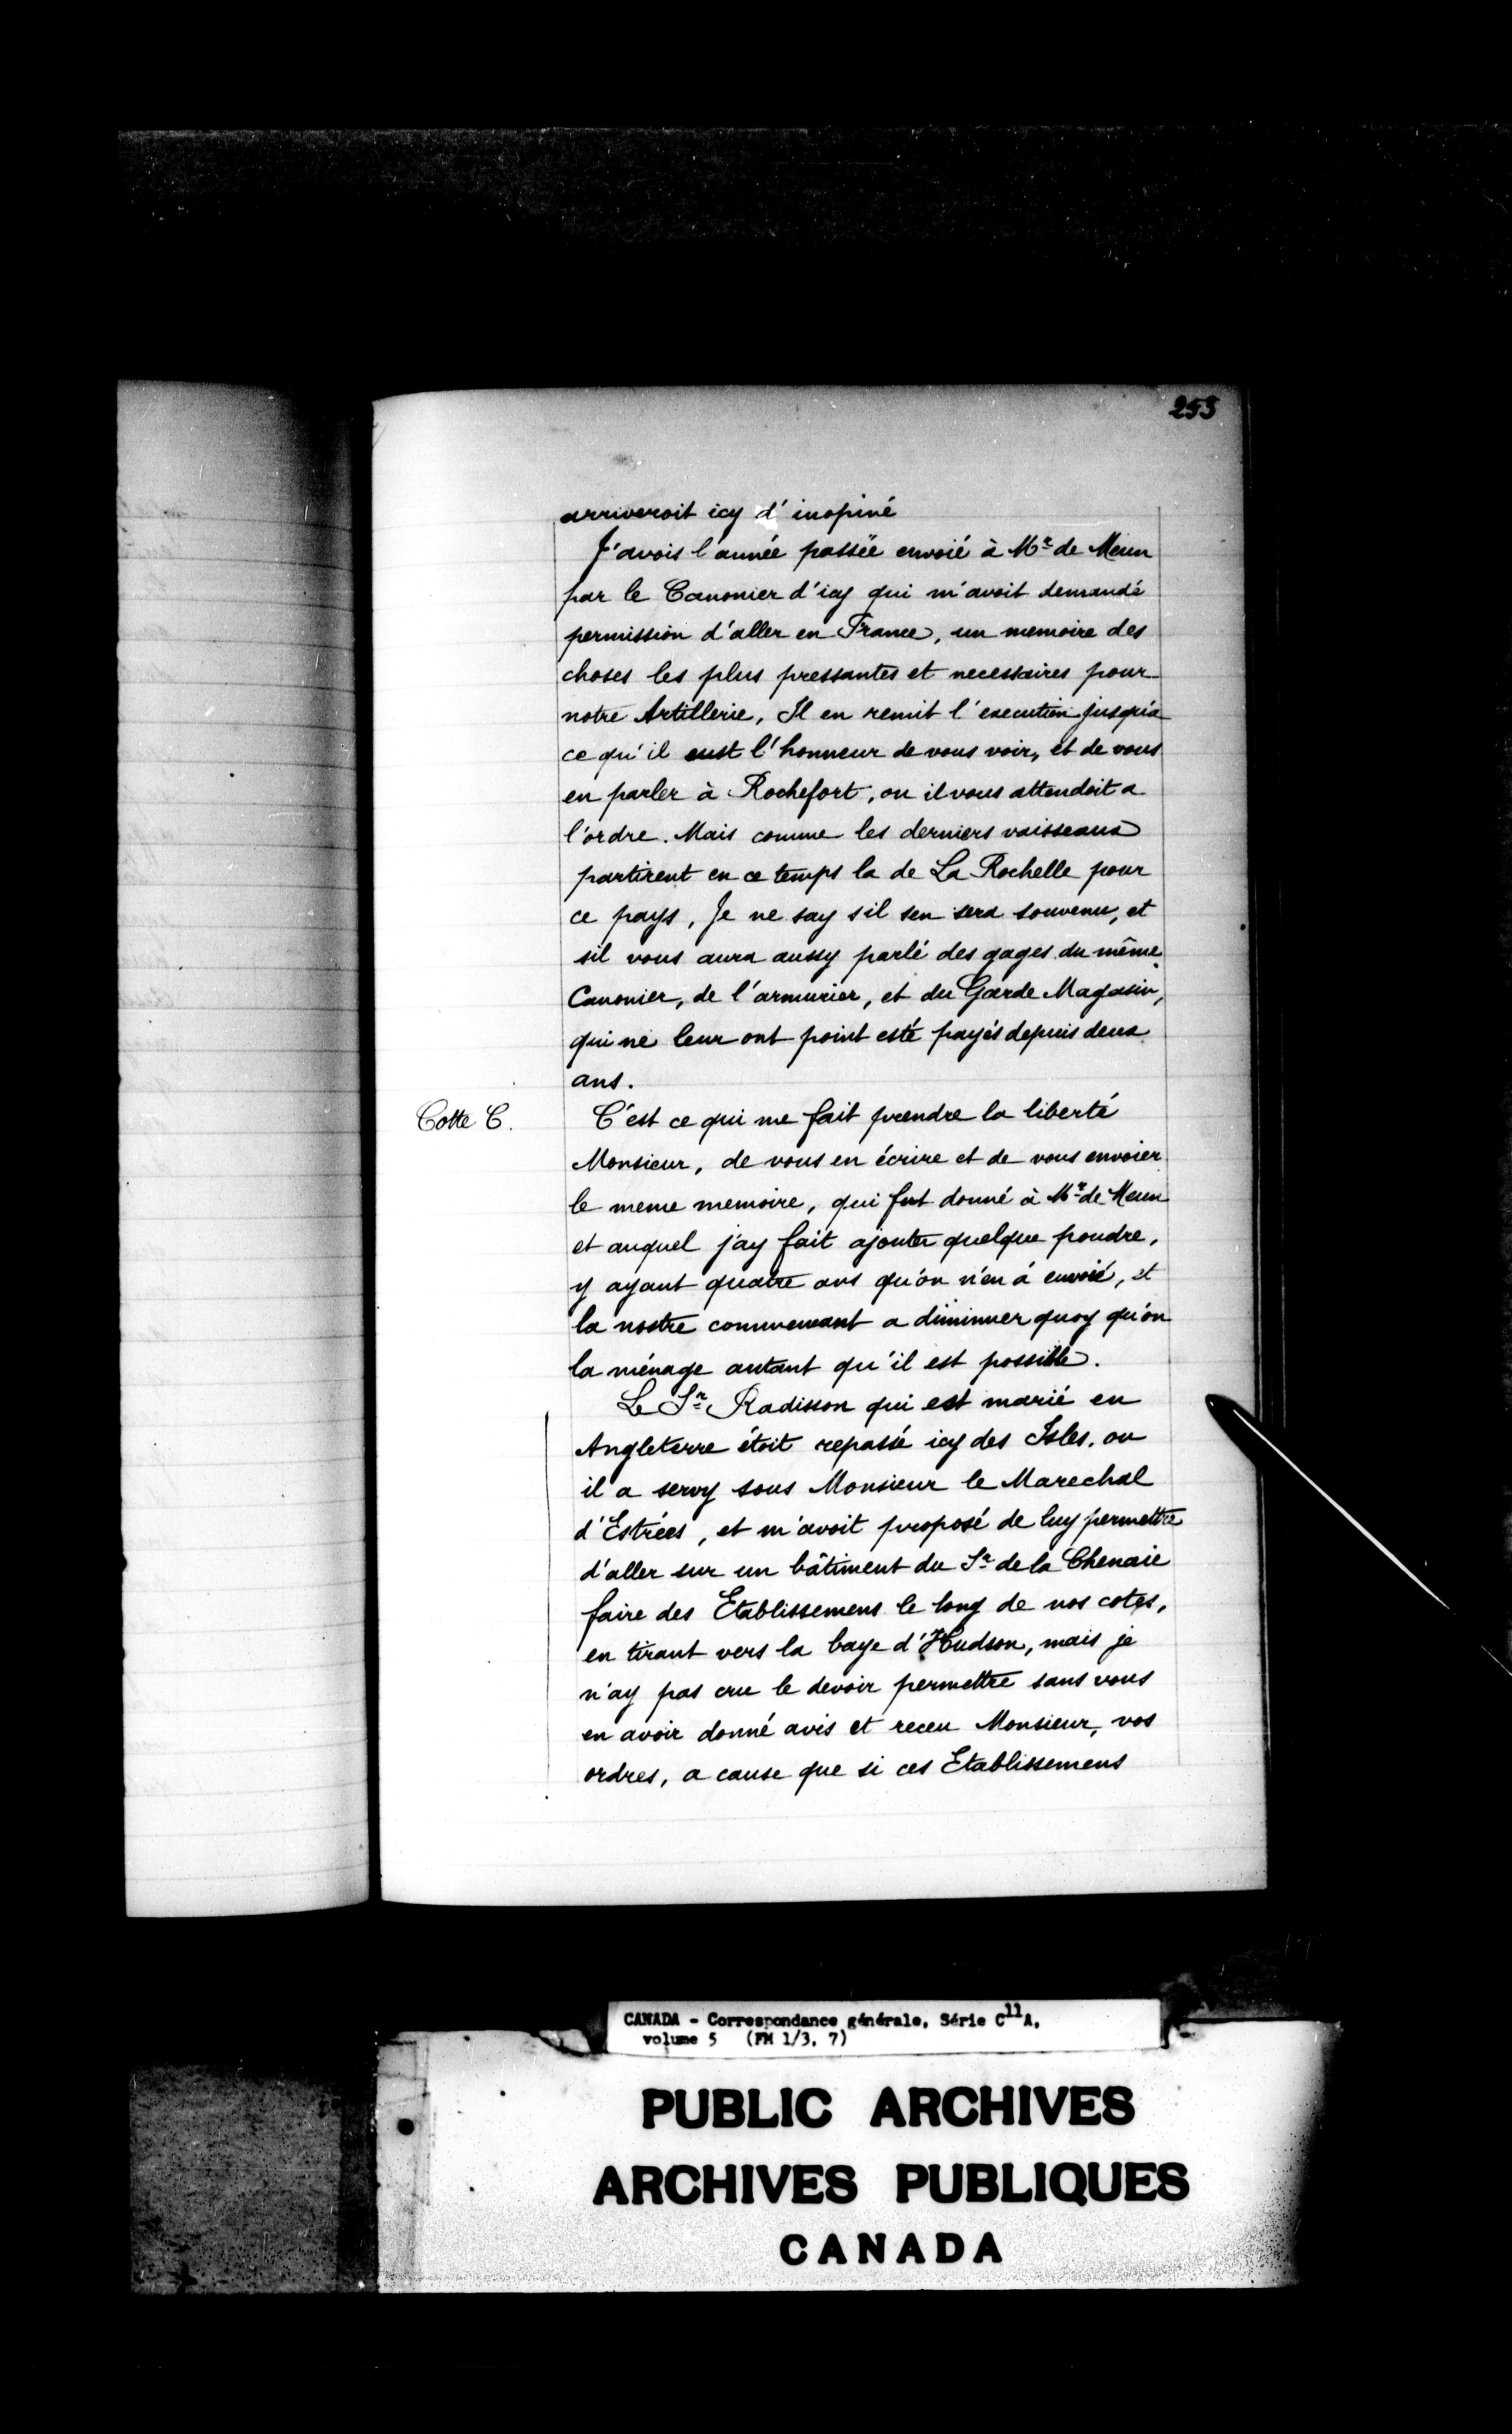 253
arriveroit icy d'inopiné
J'avois l'année passée envoié à Mr de Meun
par le Canonier d'icy qui m'avoit demandé
permission d'aller en France, un memoire des
choses les plus pressantes et necessaires pour
notre Artillerie, Il en remit l'execution jusqu'a
ce qu'il eust l'honneur de vous voir, et de vous
en parler à Rochefort, ou il vous attendoit a
l'ordre. Mais comme les derniers vaisseaux
partirent en ce temps la de La Rochelle pour
ce pays, Je ne say s'il sen sera souvenu, et
sil vous aura aussy parlé des gages du même
Canonier, de l'armurier, et du Garde Magasin,
qui ne leur ont point esté payés depuis deux
ans.
Cotte C. C'est ce qui me fait prendre la liberté
Monsieur, de vous en écrire et de vous envoier
le meme memoire, qui fut donné à Mr de Meun
et auquel j'ay fait ajouter quelque poudre,
y ayant quatre ans qu'on n'en á envoié, et
la nostre commencant a diminuer quoy qu'on
la ménage autant qu'il est possible.
Le Sr Radisson qui est marié en
Angleterre étoit repassé icy des Isles, ou
il a servy sous Monsieur le Marechal
d'Estrées, et m'avoit proposé de luy permettre
d'aller sur un bâtiment du Sr de la Chenaie
faire des Etablissemens le long de nos cotes,
en tirant vers la baye d'Hudson, mais je
n'ay pas cru le devoir permettre sans vous
en avoir donné avis et receu Monsieur, vos
ordres, a cause que si ces Etablissemens
CANADA - Correspondance générale, Série C11A,
volume 5 (FM 1/3, 7)
PUBLIC ARCHIVES
ARCHIVES PUBLIQUES
CANADA